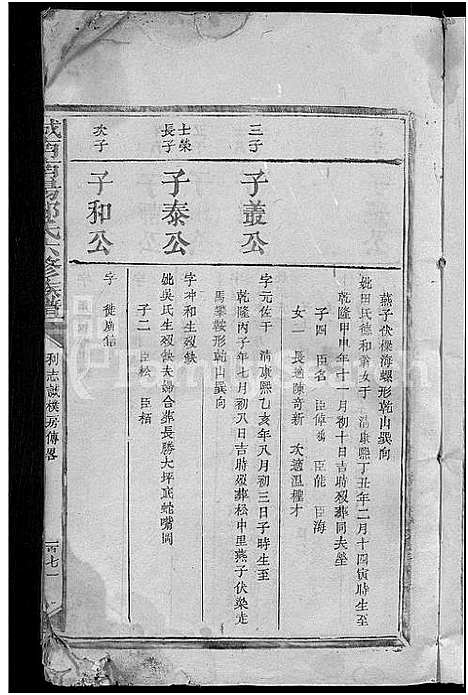 燕子伏樑海螺形乾山巽向
妣田氏德和翁女于 清康熙丁丑年二月十四寅時生至
乾隆甲申年十一月初十日吉時歿葬同夫塋
子四 臣名 臣倬 臣能 臣海
女一 長適陳奇新 次適溫權才
三子
子叢公
字元佐于 清康熙乙亥年八月初三日子時生至
乾隆丙子年七月初八日吉時歿葬松中里燕子伏梁走
馬攀鞍形乾山巽向
士榮
長子
子泰公
字冲和生歿缺
妣吳氏生歿缺夫婦合葬長勝大坪底蛇嘴岡
子二 臣松 臣栢
次子
子和公
字 徙廣信
氏六修族譜
利志誠樸房傳畧
一百七一